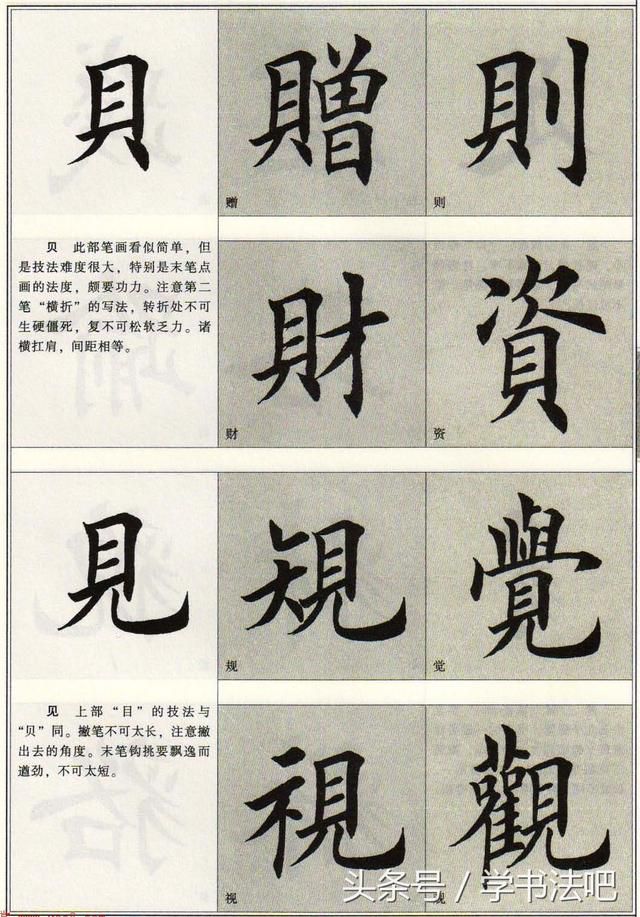 貝 贈 則
赠 则
贝 此部笔画看似简单，但
是技法难度很大，特别是末笔点
画的法度，颇要功力。注意第二
笔“横折”的写法，转折处不可
生硬僵死，复不可松软乏力。诸
横扛肩，间距相等。
財 資
财 资
見 規 覺
规 觉
见 上部“目”的技法与
“贝”同。撇笔不可太长，注意撇
出去的角度。末笔钩挑要飘逸而
遒劲，不可太短。
視 觀
视 观
头条号／学书法吧